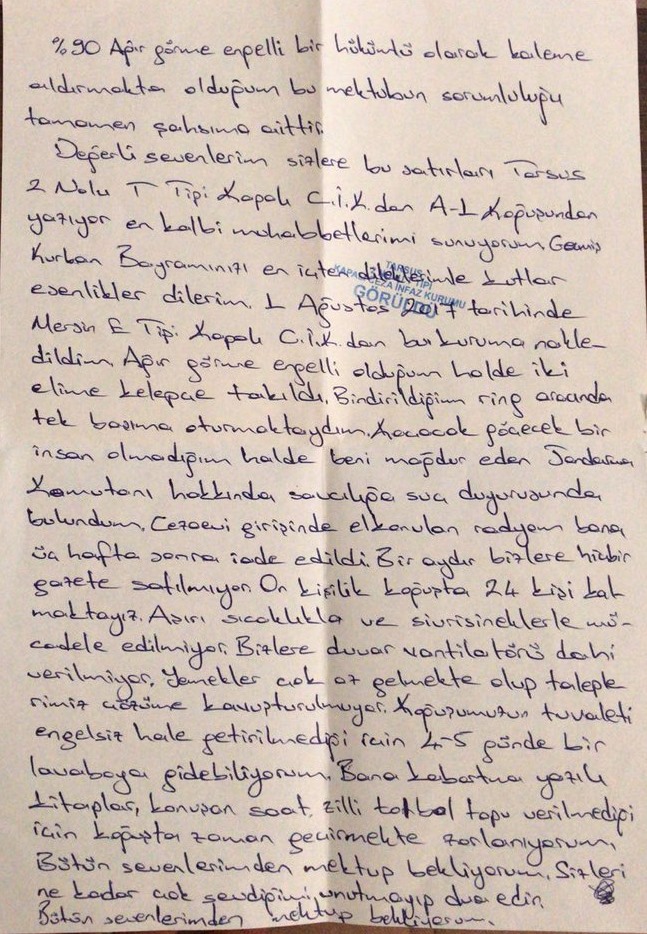 %90 Ağır görme engelli bir hükümlü olarak kaleme
aldırmakta olduğum bu mektubun sorumluluğu
tamamen şahsıma aittir.
Değerli sevenlerim sizlere bu satırları Tarsus
2 Nolu T Tipi Kapalı C.İ.K.dan A-1 Koğuşundan
yazıyor en kalbi muhabbetlerimi sunuyorum. Geçmiş
Kurban Bayramınızı en içten dileklerimle kutlar
esenlikler dilerim. 1 Ağustos 2017 tarihinde
Mersin E Tipi Kapalı C.İ.K.dan bu kuruma nakle-
dildim. Ağır görme engelli olduğum halde iki
elime kelepçe takıldı. Bindirildiğim ring aracında
tek başıma oturmaktaydım. Kaçacak göçecek bir
insan olmadığım halde beni mağdur eden Jandarma
Komutanı hakkında savcılığa suç duyurusunda
bulundum. Cezaevi girişinde elkonulan radyom bana
üç hafta sonra iade edildi. Bir aydır bizlere hiçbir
gazete satılmıyor. On kişilik koğuşta 24 kişi kal
maktayız. Aşırı sıcaklıkla ve sivrisineklerle mü-
cadele edilmiyor. Bizlere duvar vantilatörü dahi
verilmiyor. Yemekler çok az gelmekte olup taleple
rimiz çözüme kavuşturulmuyor. Koğuşumuzun tuvaleti
engelsiz hale getirilmediği için 4-5 günde bir
lavaboya gidebiliyorum. Bana kabartma yazılı
kitaplar, konuşan saat, zilli futbol topu verilmediği
için koğuşta zaman geçirmekte zorlanıyorum.
Bütün sevenlerimden mektup bekliyorum. Sizleri
ne kadar çok sevdiğimi unutmayıp dua edin.
Bütün sevenlerimden mektup bekliyorum.
TARSUS
TİPİ
KAPALI CEZA İNFAZ KURUMU
GÖRÜLDÜ